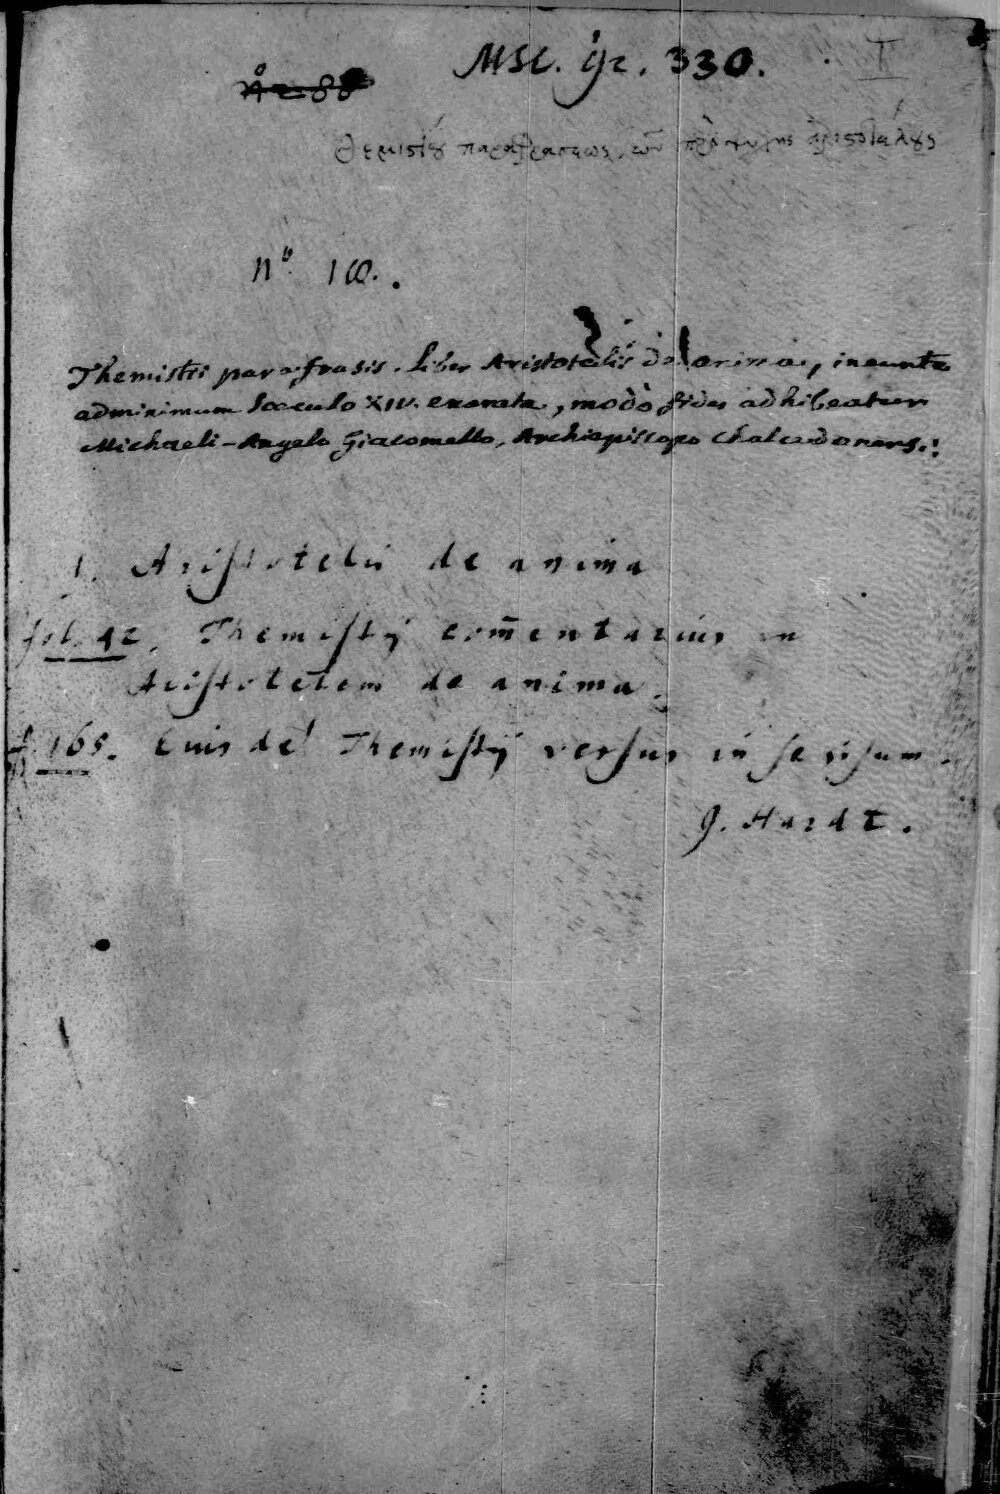 Msc. gr. 330. I
Θεμιστίου παραφράσεως τῶν περὶ ψυχῆς ἀριστοτέλους
nº. 16.
Themistii parafrasis. Liber Aristotelis de anima, ineunte
adminimum sæculo XIV. exarata, modò fides adhibeatur
Michaeli-Angelo Giacomello, Archiepiscopo Chalcedonens.:
1. Aristotelis de anima
fol. 42. Themistij com̄entarius in
Aristotelem de anima.
f. 165. Eiusdē Themistij versus in se ipsum.
J. Hardt.